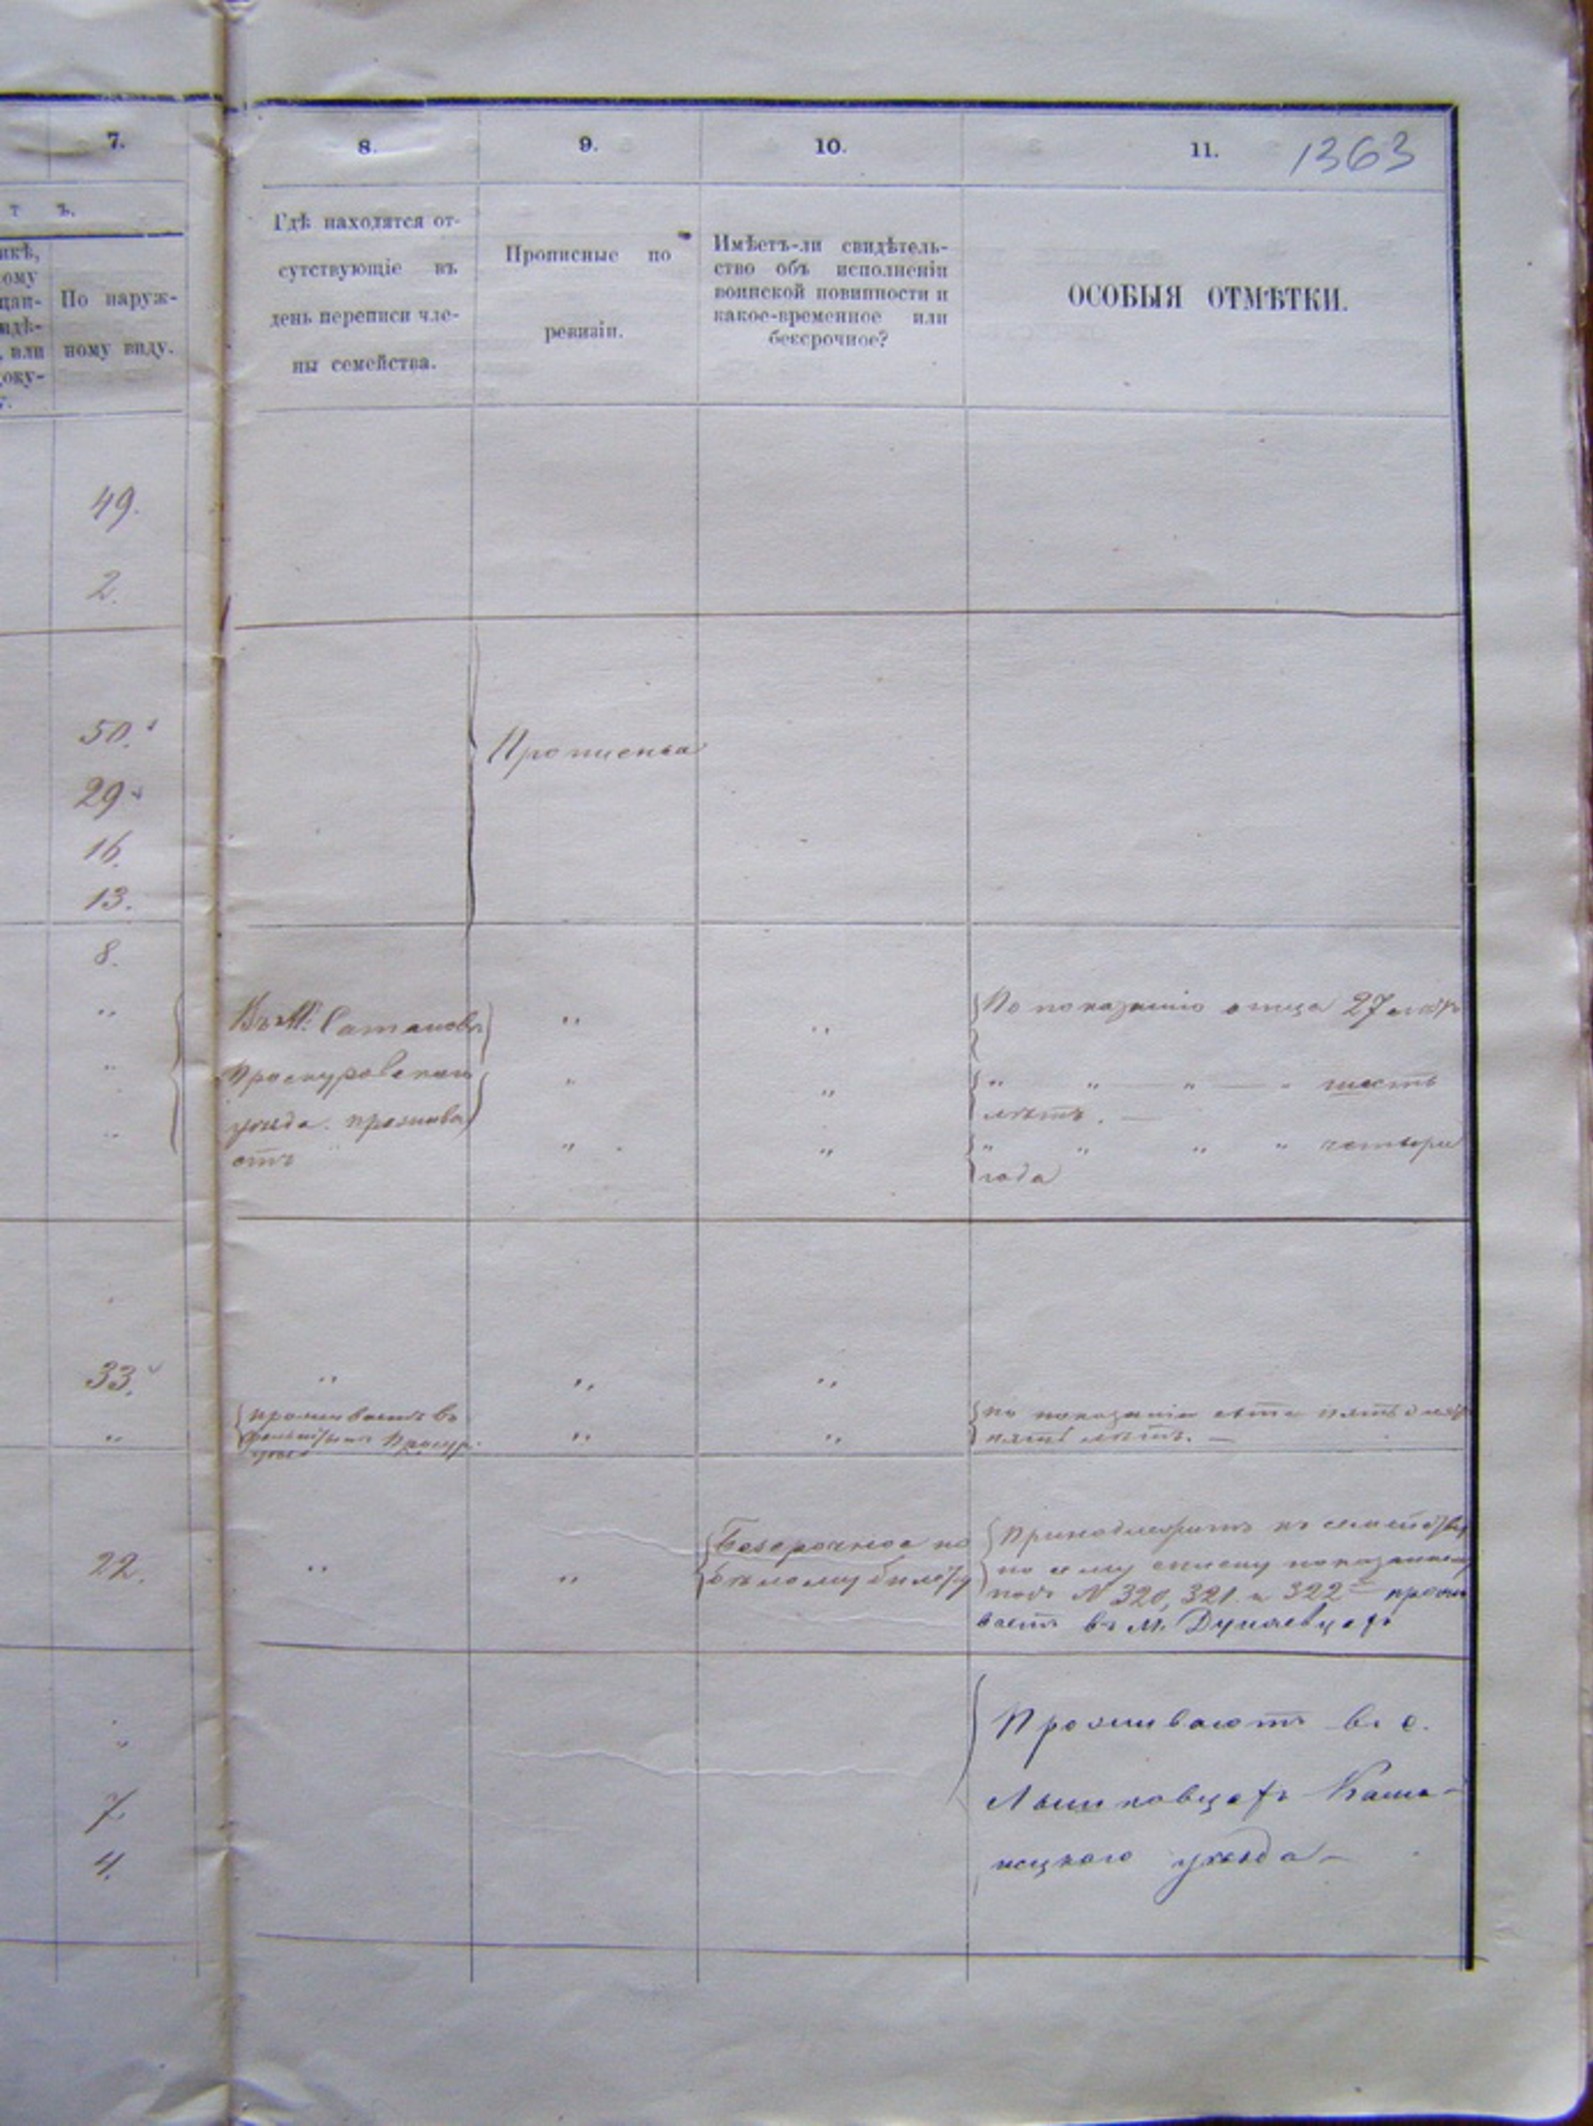 7.
8.
9.
10.
11.
1363
т ъ.
икѣ,
ому
цан-
идѣ-
, или
оку-
у.
По наруж-
ному виду.
Гдѣ находятся от-
сутствующіе въ
день переписи чле-
ны семейства.
Прописные по
ревизіи.
Имѣетъ-ли свидѣтель-
ство объ исполненіи
воинской повинности и
какое-временное или
бессрочное?
ОСОБЫЯ ОТМѢТКИ.
49.
2.
50.
29
16.
13.
Прописка
8.
Въ М: Сатановѣ
Проскуровскаго
уѣзда. прожива
етъ
" "
" "
" "
По показанію отца 27 лѣтъ
" " — " — " шесть
лѣтъ. —
" " " " четыре
года
33.
" " "
"
проживаетъ въ
" "
по показанію
пять лѣтъ. —
22.
" "
Безсрочное по
бѣлому билету
Принадлежитъ къ семейству
по сему списку показанному
подъ N 320, 321. и 322 прожи
ваетъ въ м. Дунаевцахъ
7.
4.
Проживаютъ въ с.
Лышковцахъ Каме-
нецкаго уѣзда —